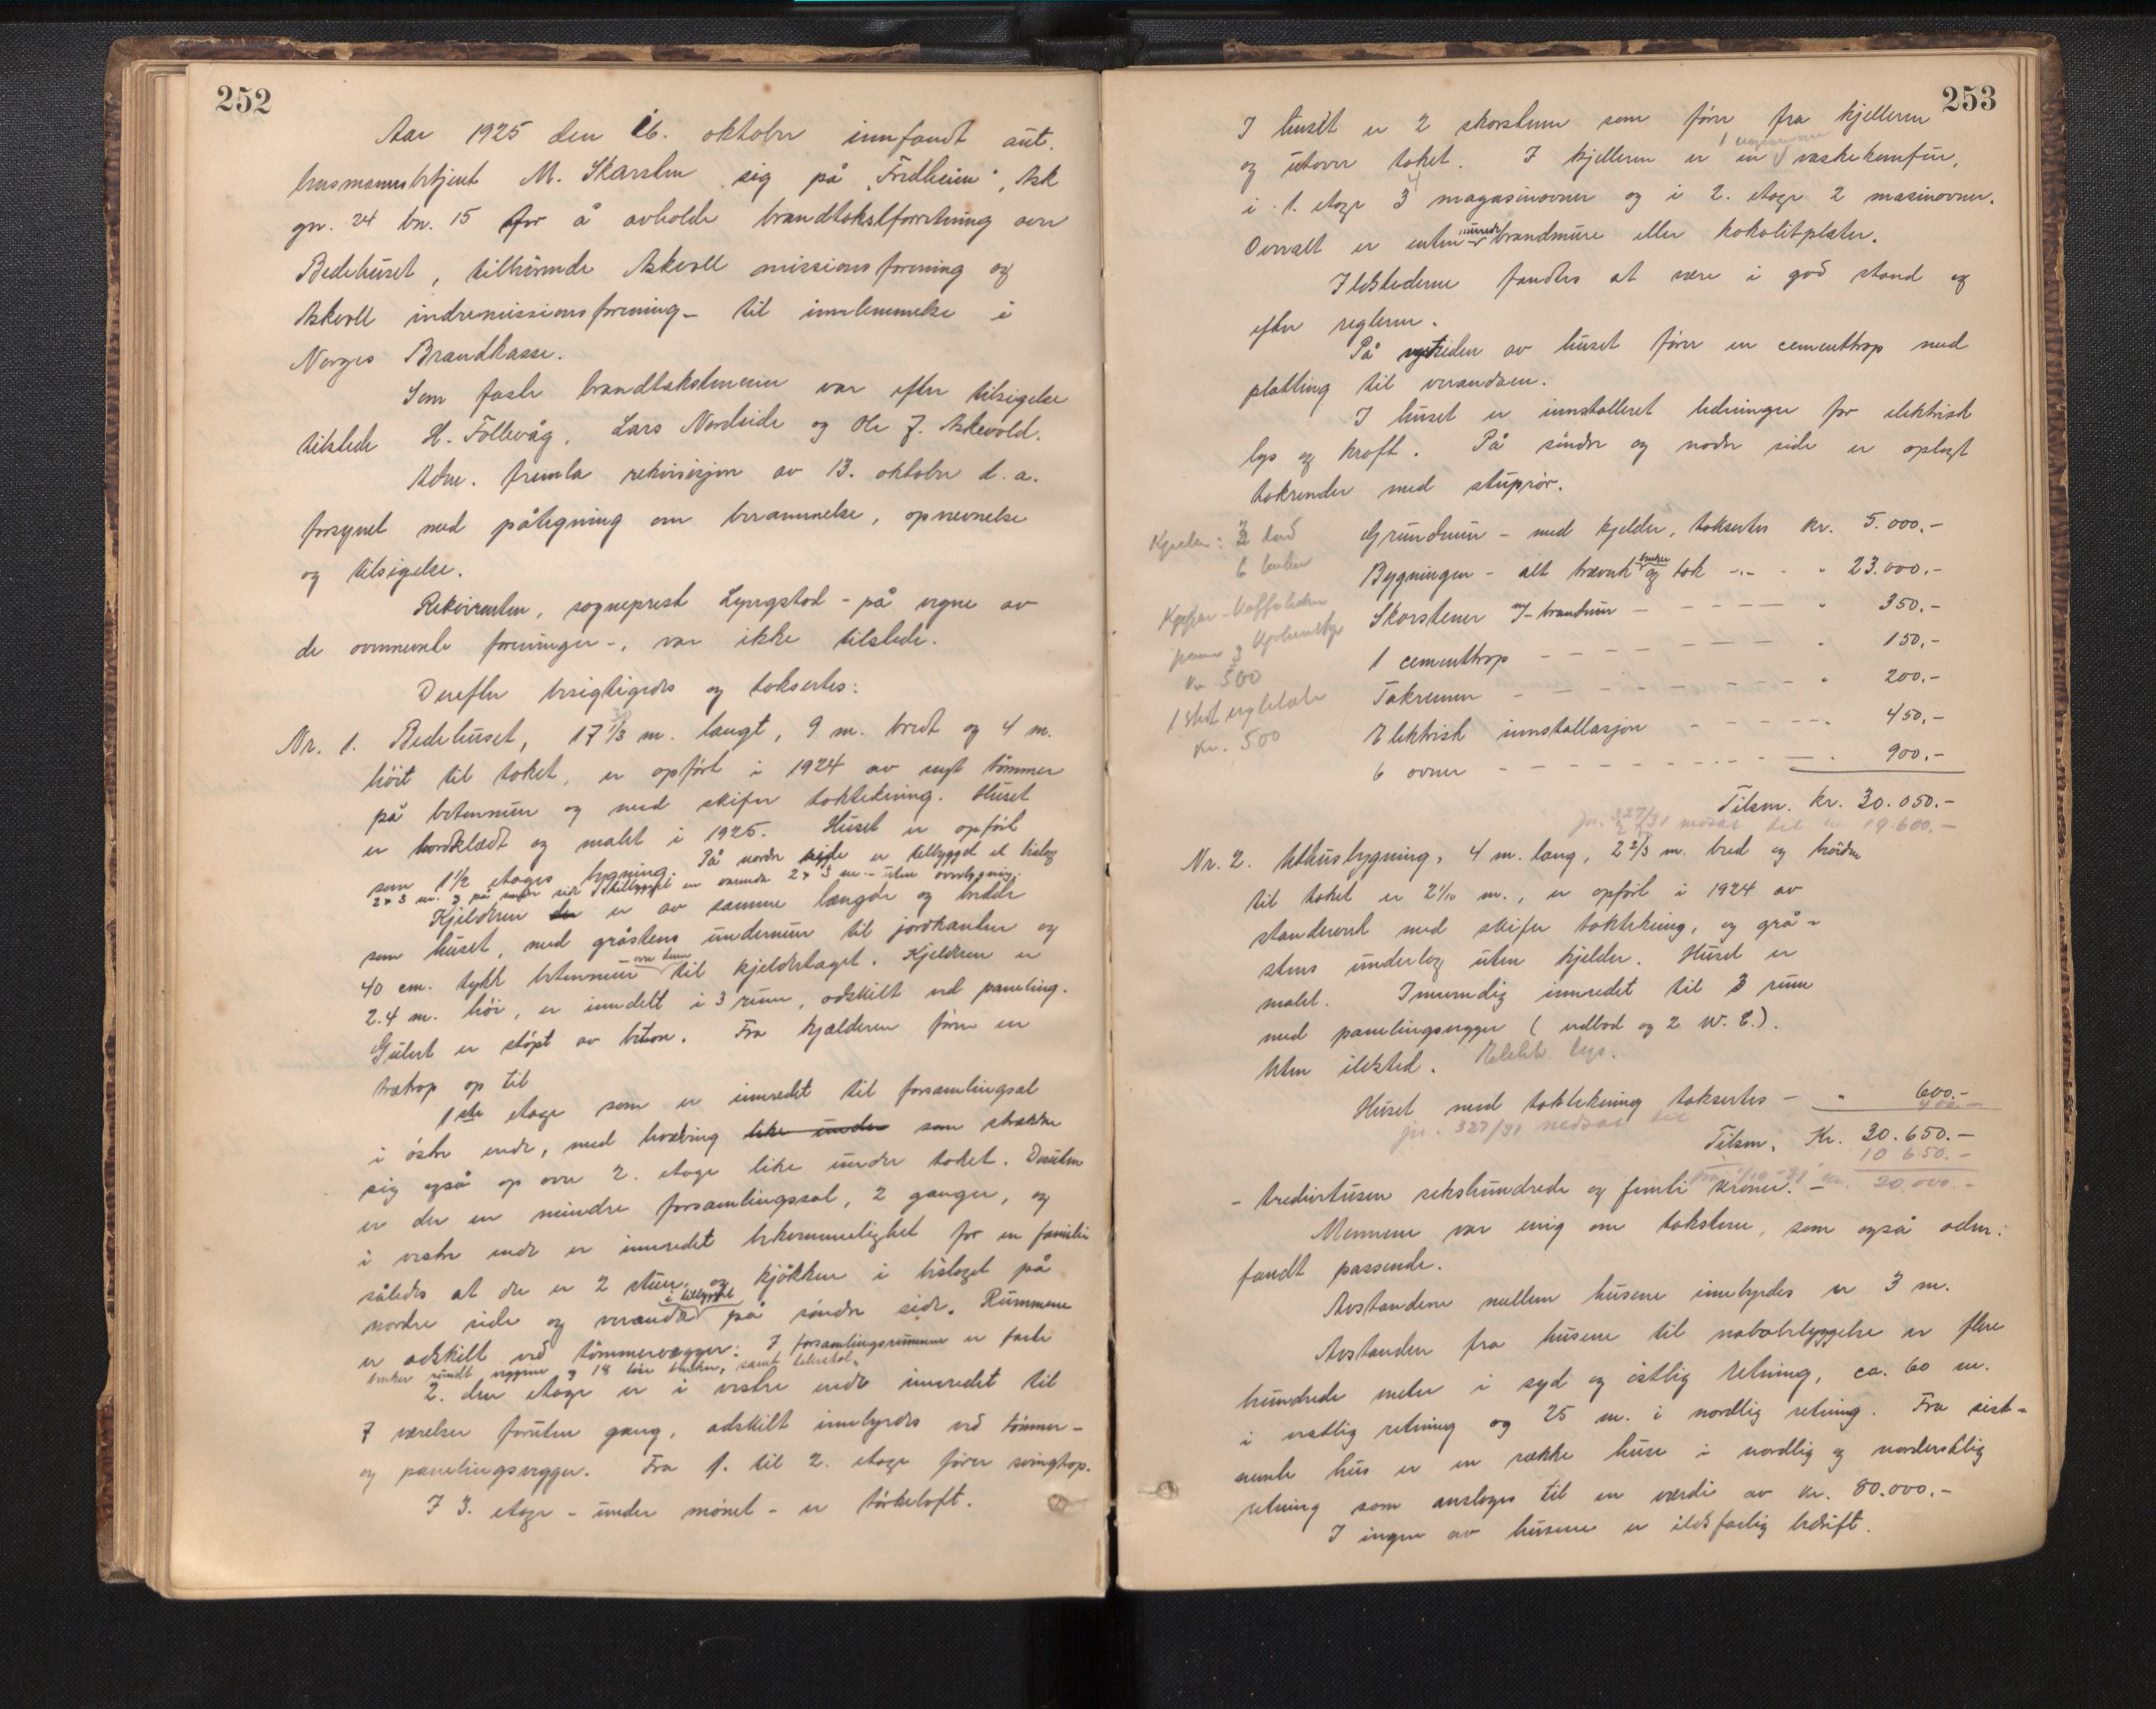 252
Aar 1925 den 16. oktober innfandt aut.
lensmannsbetjent M. Skarsten sig på "Fredheim", Ask
gn. 24 bn. 15 for å avholde brandtakstforretning over
Bedehuset, tilhörende Askvoll missionsforening og
Askvoll indremissionsforening - til innlemmelse i
Norges Brandkasse.
Som faste brandtakstmenn var efter tilsigelse
tilstede H. Follevåg, Lars Nordeide og Ole J. Askvold.
Adm. fremla rekvisisjon av 13. oktober d.a.
forsynet med påtegning om berammelse, opnevnelse
og tilsigelse.
Rekvirenten, sogneprest Lyngstad - på vegne av
de ovennevnte foreninger -, var ikke tilstede.
Derefter besigtigedes og taksertes:
Nr. 1. Bedehuset, 17 1/3 m. langt, 9 m. bredt og 4 m.
höit til taket, er opfört i 1924 av nyt tömmer
på betonmur og med skifer taktekning. Huset
er bordklædt og malet i 1925. Huset er opfört
som 1 1/2 etages bygning. På nordre side er tilbygget et bislag
2 x 3 m. og på söndre side tilbygget en veranda 2 x 3 m. - uten overbygning.
Kjelderen er av samme længde og bredde
som huset, med gråstens undermur til jordkanten og
40 cm. tykk betonmur over denne til kjelderlaget. Kjelderen er
2.4 m. höi, er inndelt i 3 rum, adskilt ved paneling.
Gulvet er stöpt av beton. Fra kjælderen förer en
trætrap op til
1ste etage som er innredet til forsamlingssal
i östre ende, med hvælving like under som strekker
sig også op over 2. etage like under taket. Desuten
er der en mindre forsamlingssal, 2 ganger, og
i vestre ende er innredet bekvemmelighet for en familie
således at der er 2 stuer, og kjökken i bislaget på
nordre side og veranda i tilbygget på söndre side. Rummene
er adskilt ved tömmervegger. I forsamlingsrummene er faste
benker rundt veggene og 18 löse benker, samt talerstol.
2. den etage er i vestre ende innredet til
7 værelser foruten gang, adskilt innbyrdes ved tömmer-
og panelingsvegger. Fra 1. til 2. etage förer svingtrap.
I 3. etage - under mönet - er törkeloft.
253
I huset er 2 skorstener som förer fra kjelleren
og utover taket. I kjelleren er en vaskekomfur,
i 1. etage 3 4 magasinovner og i 2. etage 2 masinovner.
Overalt er enten murede brandmure eller kokolitplater.
Ildstederne fandtes at være i god stand og
efter reglerne.
På vestsiden av huset förer en cementtrap med
platting til verandaen.
I huset er innstalleret ledninger for elektrisk
lys og kraft. På söndre og nordre side er oplagt
takrender med stuprör.
Grundmur - med kjelder, taksertes kr. 5.000.-
Bygningen - alt træverk benker og tak -.- - " 23.000.-
Skorstener m/ brandmur - - - - - " 350.-
1 cementtrap - - - - - - - " 150.-
Takrenner - - - - - - - " 200.-
Elektrisk innstallasjon - - - - - 450.-
6 ovner - - - - - - - 900.-
Kr. 500
Kr. 500
Tilsm. kr. 30.050.-
jn. 327/31 nedsat til kr. 19.600.-
Nr. 2. Uthusbygning, 4 m. lang, 2 2/3 m. bred og höiden
til taket er 2 1/10 m., er opfört i 1924 av
standerverk med skifer taktekning, og grå-
stens underlag uten kjelder. Huset er
malet. Innvendig innredet til 3 rum
med panelingsvegger (vedbod og 2 W.C.).
Uten ildsted. Elektr. lys.
Huset med taktekning taksertes - " 600.-
jn. 327/31 nedsat til 400.-
Tilsm. Kr. 30.650.-
10 650.-
kr. 20.000.-
- tredivetusen sekshundrede og femti kroner. -
Mennene var enig om takstene, som også adm:
fandt passende.
Avstandene mellem husene innbyrdes er 3 m.
Avstanden fra husene til nabobebyggelse er flere
hundrede meter i syd og östlig retning, ca. 60 m.
i vestlig retning og 25 m. i nordlig retning. Fra sist-
nevnte hus er en række huse i nordlig og nordvestlig
retning som anslages til en værdi av kr. 80.000.-
I ingen av husene er ildsfarlig bedrift.